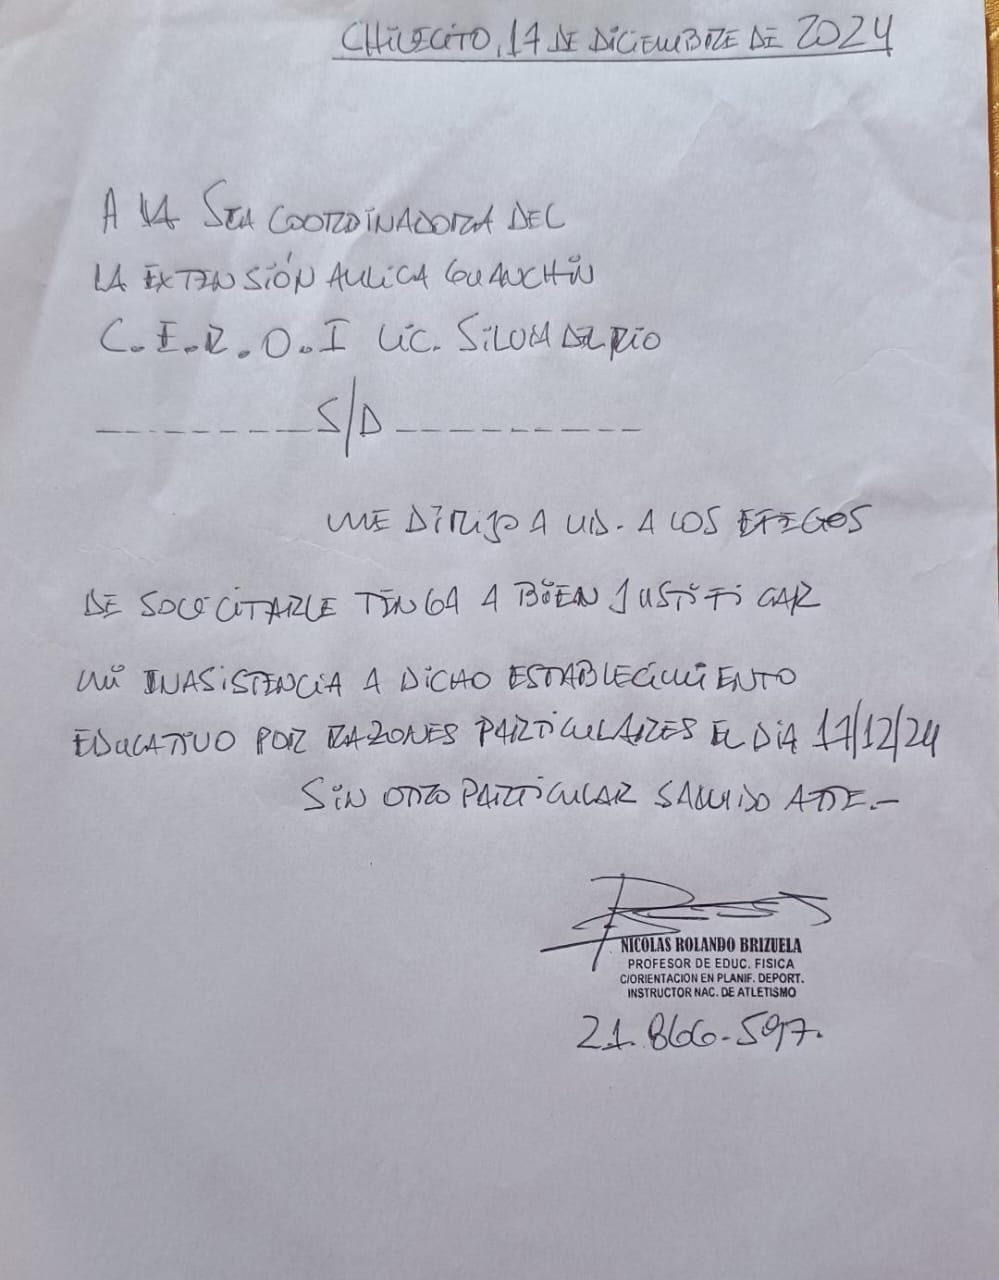 CHILECITO, 17 DE DICIEMBRE DE 2024
A LA SRA COORDINADORA DEL
LA EXTENSIÓN AULICA GUANCHIN
C.E.R.O.I LIC. SILVIA DEL RIO
--------S/D----------
ME DIRIJO A UD. A LOS EFECTOS
DE SOLICITARLE TENGA A BIEN JUSTIFICAR
MI INASISTENCIA A DICHO ESTABLECIMIENTO
EDUCATIVO POR RAZONES PARTICULARES EL DIA 17/12/24
SIN OTRO PARTICULAR SALUDO ATTE.-
NICOLAS ROLANDO BRIZUELA
PROFESOR DE EDUC. FISICA
C/ORIENTACION EN PLANIF. DEPORT.
INSTRUCTOR NAC. DE ATLETISMO
21.866-597.